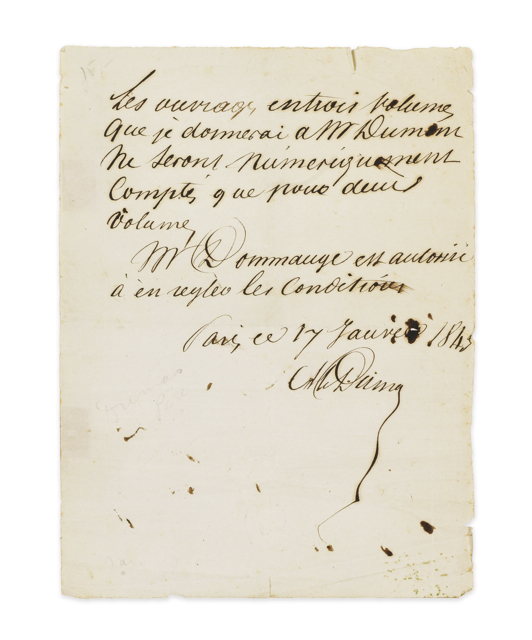 Les ouvrages entrois volumes
Que je donnerai a Mr Dumont
Ne seront Numeriquement
Comptés que pour deux
Volumes
Mr Dommange est autorisé
à en regler les Conditions
Paris ce 17 Janvier 184
Al Dumas